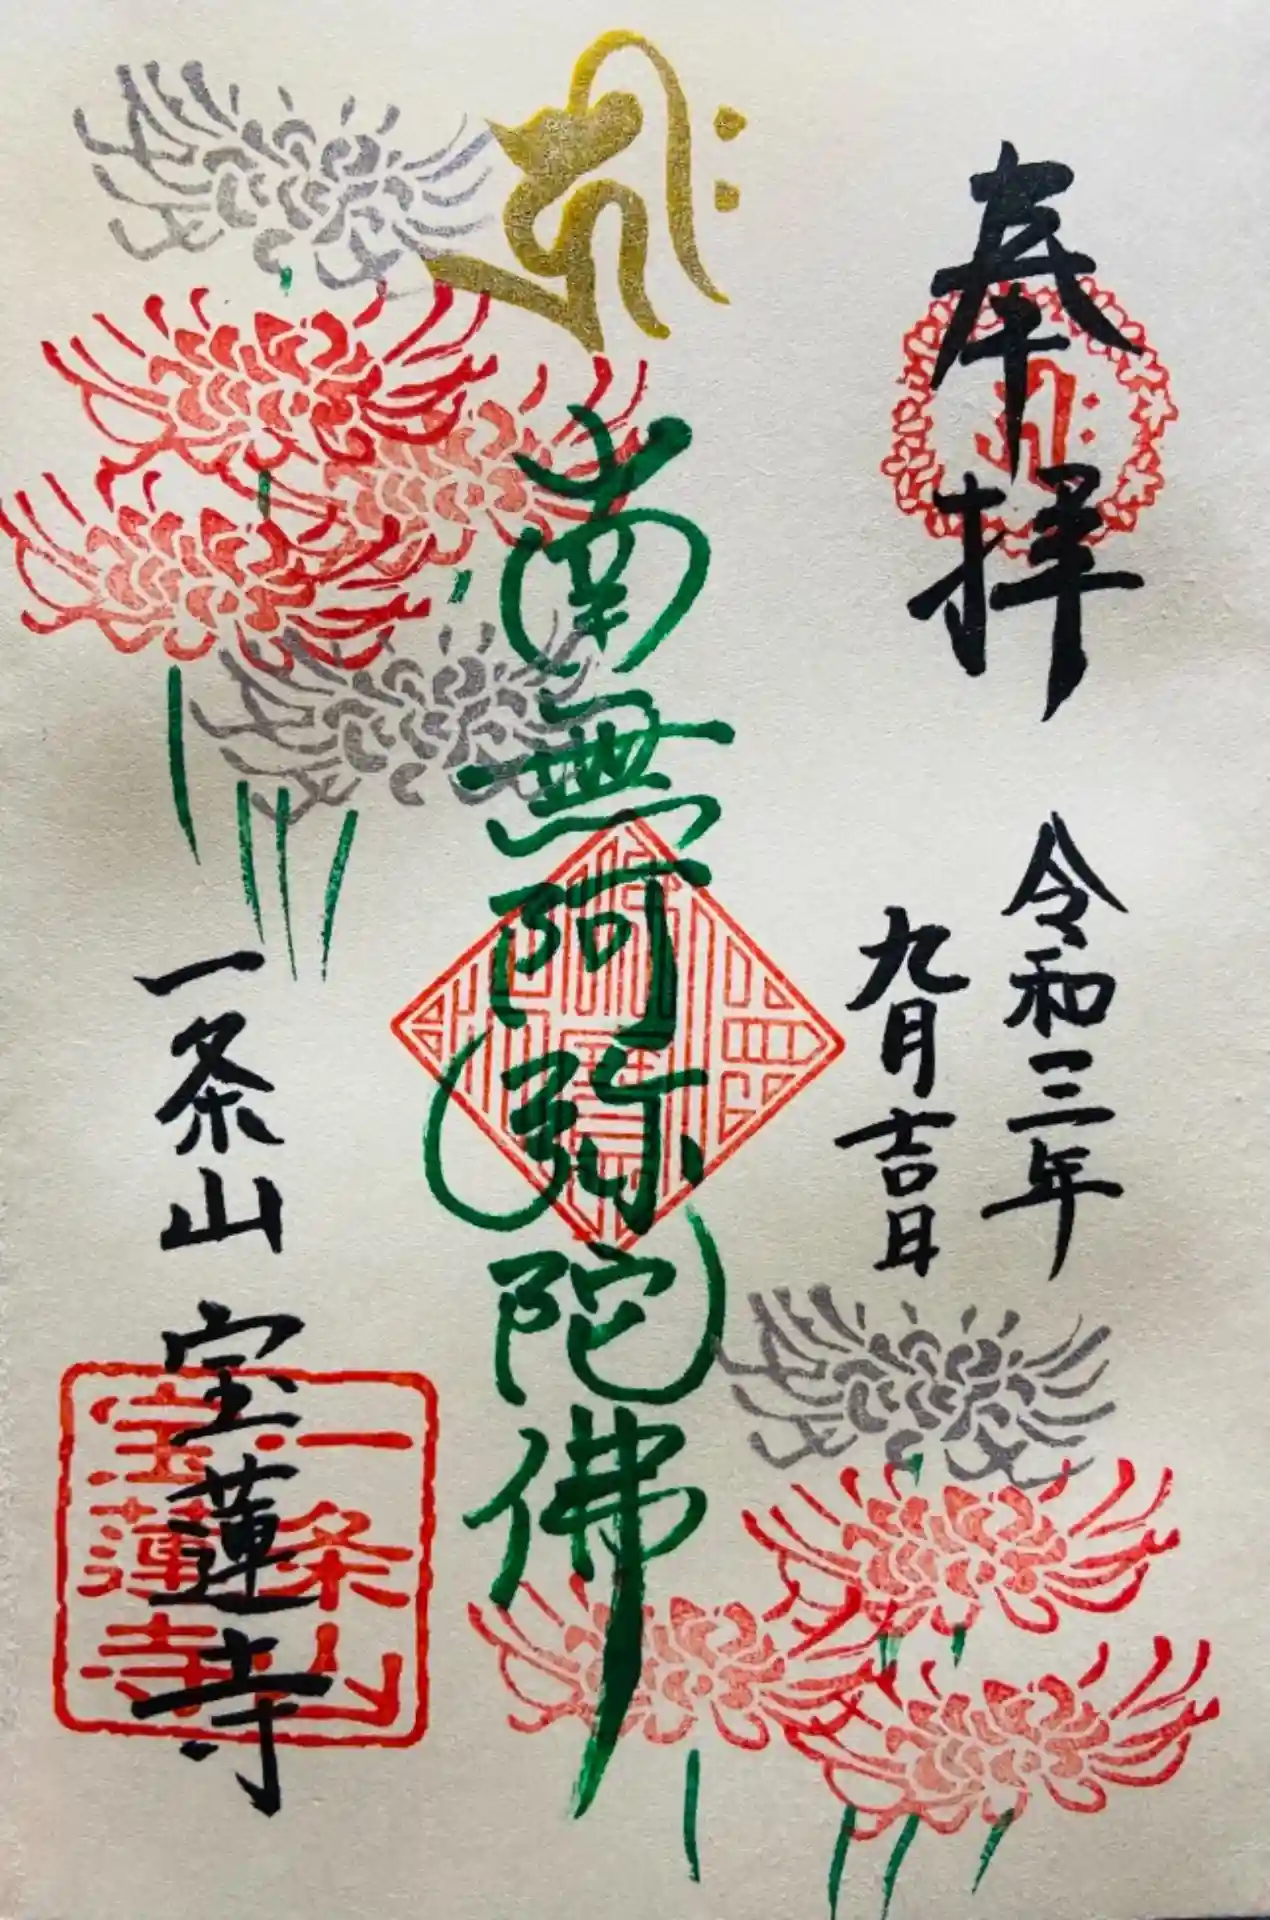 奉拝
令和三年
九月吉日
キリーク
南無阿弥陀佛
一条山 宝蓮寺
一条山
宝蓮寺